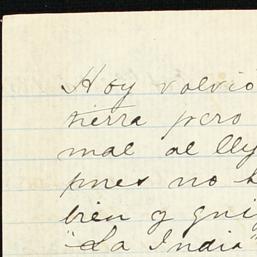 Hoy volvió
tierra pero
mal al lly
pues no h
bien y qui
"La India"